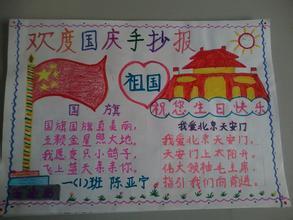 欢度国庆手抄报
祖国
祝您生日快乐
国旗
国旗国旗真美丽,
五颗金星照大地,
我愿变只小鸽子,
飞上蓝天亲亲你。
一(1)班 陈亚宁
我爱北京天安门
我爱北京天安门,
天安门上太阳升,
伟大领袖毛主席,
指引我们向前进。